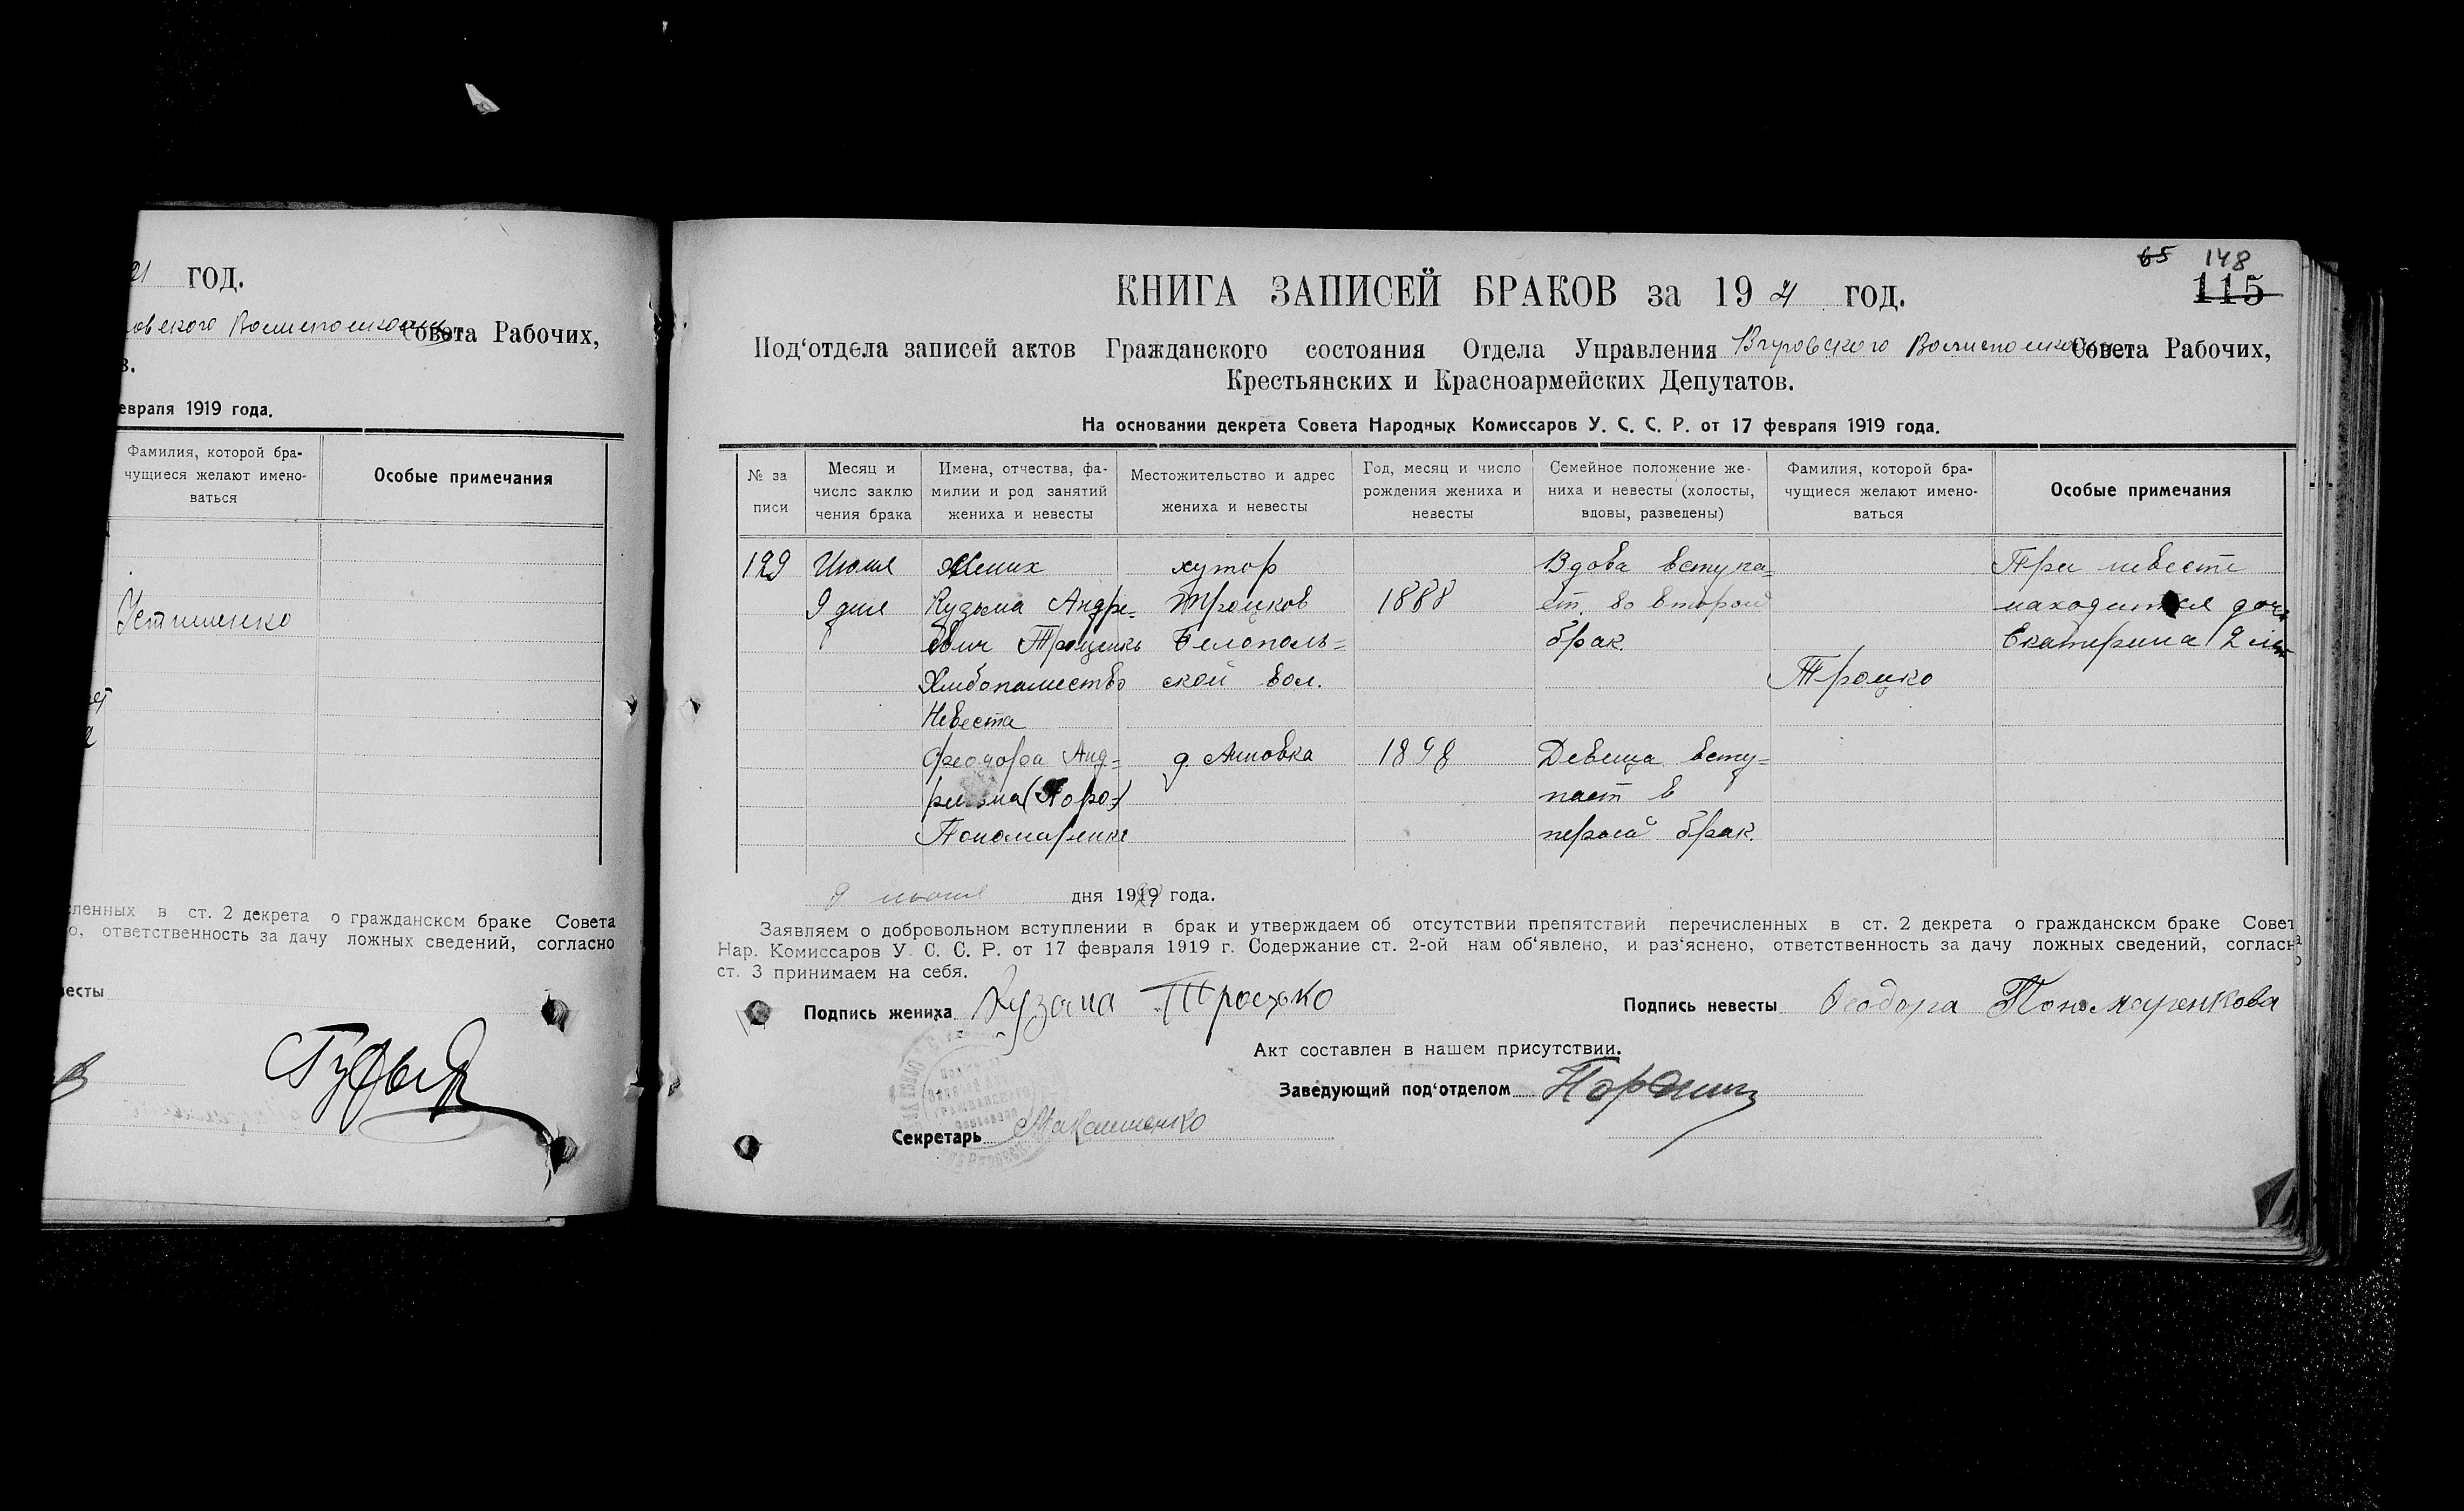 21 ГОД.
Совета Рабочих,
в.
евраля 1919 года.
Фамилия, которой бра-
чущиеся желают имено-
ваться
Особые примечания
Устименко
ленных в ст. 2 декрета о гражданском браке Совета
о, ответственность за дачу ложных сведений, согласно
весты
65 148
115
КНИГА ЗАПИСЕЙ БРАКОВ за 1921 ГОД.
Под‘отдела записей актов Гражданского состояния Отдела Управления Совета Рабочих,
Крестьянских и Красноармейских Депутатов.
На основании декрета Совета Народных Комиссаров У. С. С. Р. от 17 февраля 1919 года.
№ за
писи
Месяц и
число заклю
чения брака
Имена, отчества, фа-
милии и род занятий
жениха и невесты
Местожительство и адрес
жениха и невесты
Год, месяц и число
рождения жениха и
невесты
Семейное положение же-
ниха и невесты (холосты,
вдовы, разведены)
Фамилия, которой бра-
чущиеся желают имено-
ваться
Особые примечания
129 Июля Жених хутор Вдова вступа= При невесте
9 дня Кузьма Андре- Троцков 1888 ет во второй находится дочь
евич Троценко Белополь= брак. Екатерина 2 лет
ской вол. Троцко
Невеста
Феодора Анд= 1898 Девица всту=
пает в
Пономаренко первый брак.
9 июля дня 1921 года.
Заявляем о добровольном вступлении в брак и утверждаем об отсутствии препятствий перечисленных в ст. 2 декрета о гражданском браке Совета
Нар. Комиссаров У. С. С. Р. от 17 февраля 1919 г. Содержание ст. 2-ой нам об‘явлено, и раз‘яснено, ответственность за дачу ложных сведений, согласно
ст. 3 принимаем на себя.
Подпись жениха Кузма Троцко Подпись невесты Феодора Пономаренкова
Акт составлен в нашем присутствии.
Заведующий под‘отделом
Секретарь Макаменко